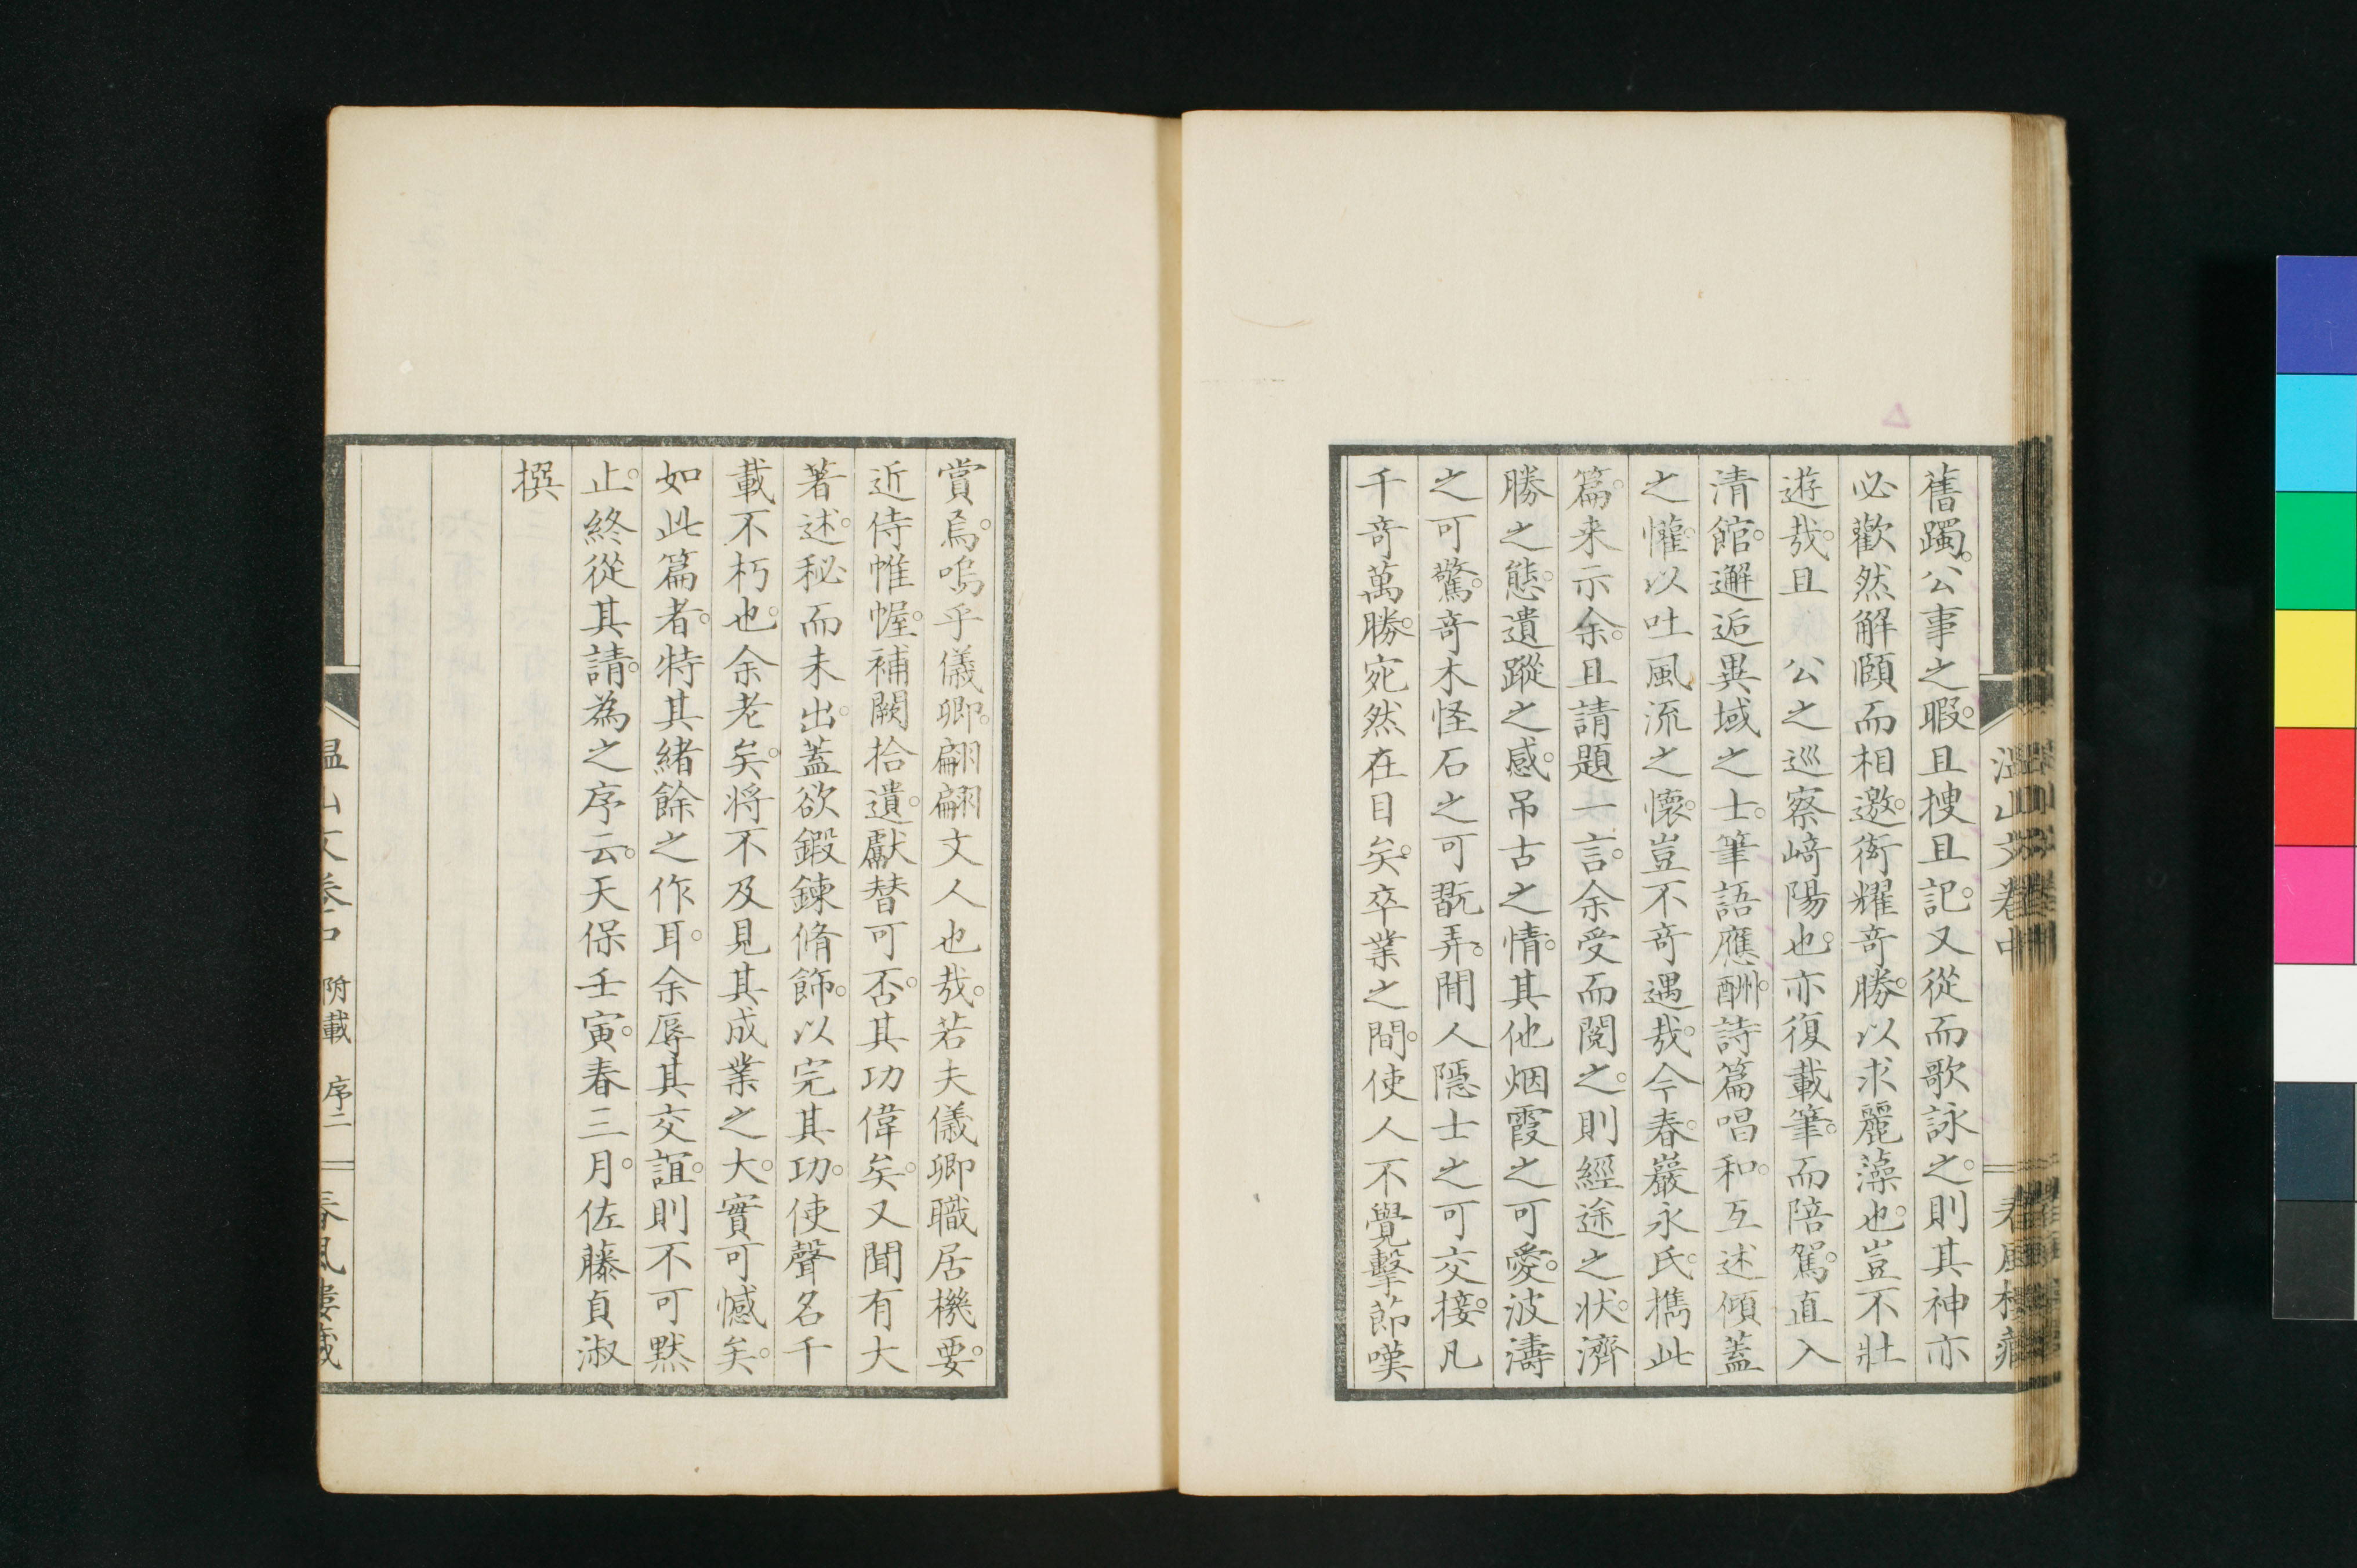 舊躅。公事之暇。且捜且記。又從而歌詠之。則其神亦
必歡然解頤而相邀。衒耀竒勝。以求麗藻也。豈不壯
遊哉。且　公之巡察﨑陽也。亦復載筆。而陪駕。直入
清館。邂逅異域之士。筆語應酬。詩篇唱和。互述傾蓋
之懽。以吐風流之懷。豈不竒遇哉。今春。巖永氏。擕此
篇。来示余。且請題一言。余受而閲之。則經途之状。濟
勝之態。遺蹤之感。吊古之情。其他烟霞之可愛。波濤
之可驚。竒木怪石之可翫弄。閒人隱士之可交接。凡
千竒萬勝。宛然在目矣。卒業之間。使人不覺擊節嘆
賞。烏嗚乎儀卿。翩翩文人也哉。若夫儀卿職居機要。
近侍帷幄。補闕拾遺。獻替可否。其功偉矣。又聞有大
著述。秘而未出。蓋欲鍛鍊脩飾。以完其功。使聲名千
載不朽也。余老矣。将不及見其成業之大。實可憾矣。
如此篇者。特其緒餘之作耳。余辱其交誼。則不可黙
止。終從其請。為之序云。天保壬寅。春三月。佐藤貞淑
撰
温山文卷中　附載　序二　春風樓藏